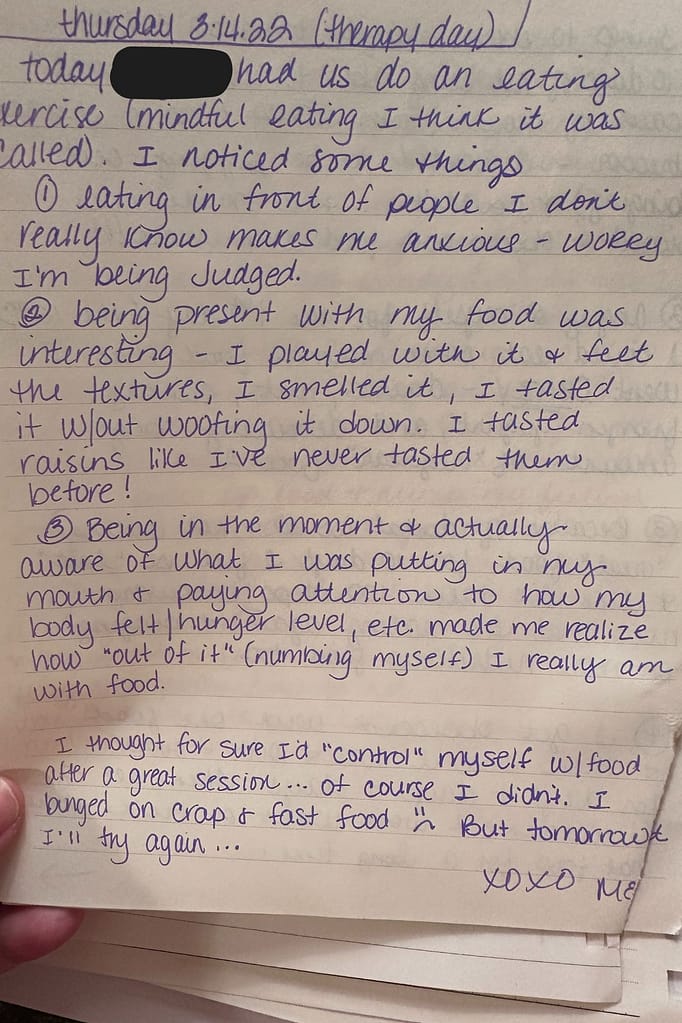 thursday 3.14.22 (therapy day)
today had us do an eating
xercise (mindful eating I think it was
called). I noticed some things
① eating in front of people I don't
really know makes me anxious - worry
I'm being Judged.
② being present with my food was
interesting - I played with it & feet
the textures, I smelled it, I tasted
it w/out woofing it down. I tasted
raisins like I've never tasted them
before!
③ Being in the moment & actually
aware of what I was putting in my
mouth & paying attention to how my
body felt/hunger level, etc. made me realize
how "out of it" (numbing myself) I really am
with food.
I thought for sure I'd "control" myself w/food
after a great session... of course I didn't. I
binged on crap & fast food But tomorrow
I'll try again...
XOXO ME